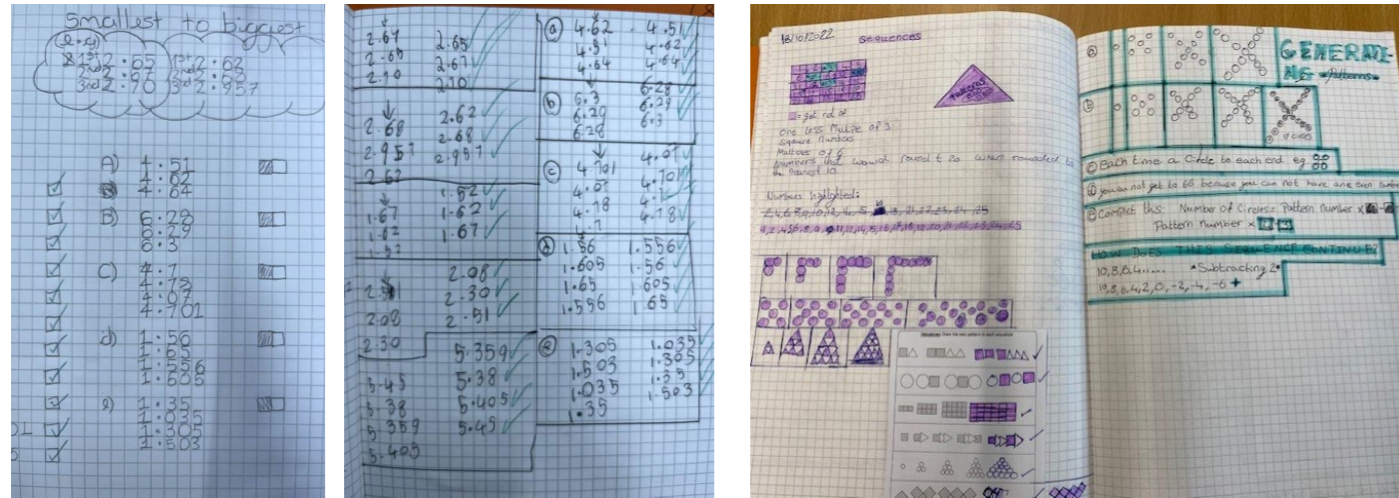 Smallest to biggest
e.g
1st 2.65 1st 2.62
2nd 2.67 2nd 2.68
3rd 2.70 3rd 2.957
A) 4.51
4.62
4.64
B) 6.28
6.29
6.3
C) 4.7
4.78
4.07
4.701
d) 1.56
1.65
1.556
1.605
e) 1.35
1.035
1.305
1.503
2.67 2.65
2.65 2.67
2.70 2.70
2.68 2.62
2.957 2.68
2.62 2.957
1.67 1.52
1.62 1.62
1.52 1.67
2.08
2.51 2.30
2.08 2.51
2.30
5.45 5.359
5.38 5.38
5.359 5.405
5.405 5.45
a) 4.62 4.51
4.51 4.62
4.64 4.64
b) 6.3 6.28
6.29 6.29
6.28 6.3
c) 4.701 4.07
4.07 4.701
4.78
4.7 4.78
d) 1.56 1.556
1.605 1.56
1.65 1.605
1.556 1.65
e) 1.305 1.035
1.503 1.305
1.035 1.35
1.35 1.503
18/10/2022 Sequences
= get rid of
One less Multiple of 3
Square numbers
Multiples of 6
Numbers that would round to 20 when rounded to
the nearest 10
Numbers highlighted:
a)
GENERATE
NG Patterns
b)
c) Each time a Circle to each end eg.
d) you can not get to 66 because you can not have an even number
e) Complet this: Number of Circles = Pattern number x
Pattern number x
HOW DOES THIS SEQUENCE CONTINUE?
10,8,6,4..... Subtracting 2
10,8,6,4,2,0,-2,-4,-6